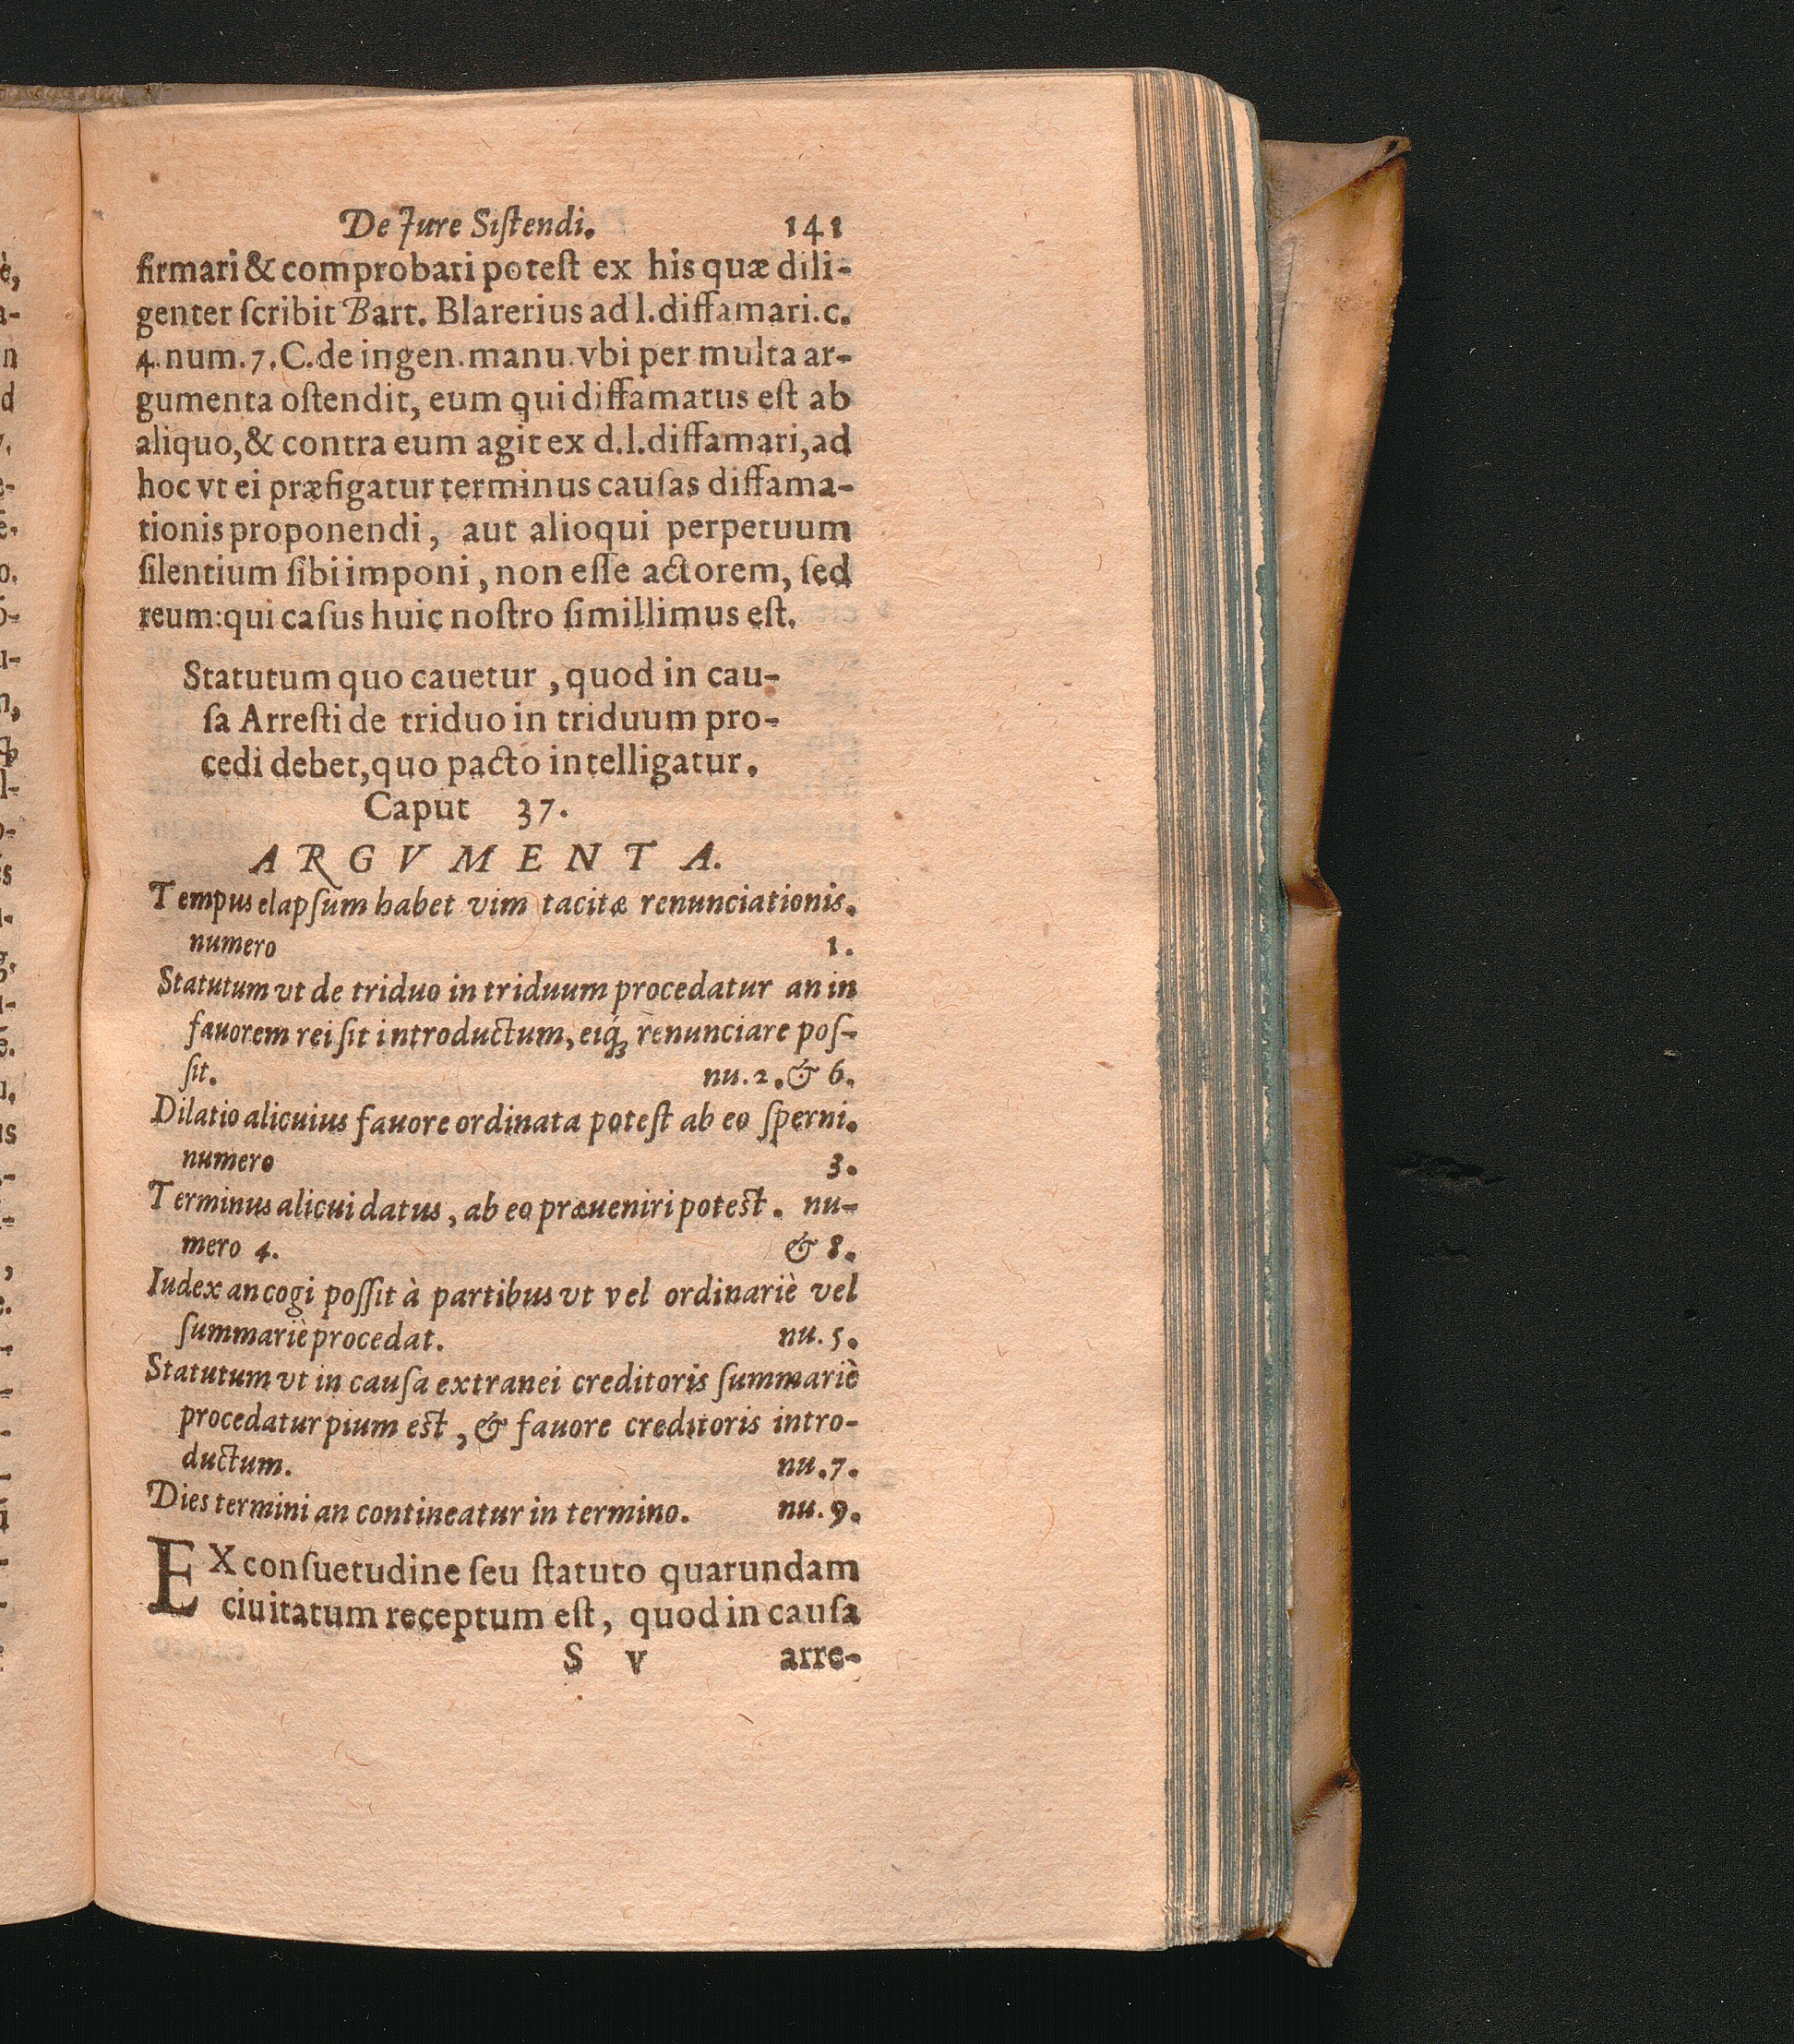 De Jure Siſtendi. 141
firmari & comprobari poteſt ex his quæ dili-
genter ſcribit Bart. Blarerius ad l. diffamari. c.
4. num. 7. C. de ingen. manu. vbi per multa ar-
gumenta oſtendit, eum qui diffamatus eſt ab
aliquo, & contra eum agit ex d. l. diffamari, ad
hoc vt ei præfigatur terminus cauſas diffama-
tionis proponendi, aut alioqui perpetuum
ſilentium ſibi imponi, non eſſe actorem, ſed
reum: qui caſus huic noſtro ſimillimus eſt.
Statutum quo cauetur, quod in cau-
ſa Arreſti de triduo in triduum pro-
cedi debet, quo pacto intelligatur.
Caput 37.
ARGVMENTA.
Tempus elapſum habet vim tacitæ renunciationis.
numero 1.
Statutum vt de triduo in triduum procedatur an in
fauorem rei ſit introductum, eiq́ꝫ renunciare poſ-
ſit. nu. 2. & 6.
Dilatio alicuius fauore ordinata poteſt ab eo ſperni.
numero 3.
Terminus alicui datus, ab eo præueniri poteſt. nu-
mero 4. & 8.
Iudex an cogi poſſit à partibus vt vel ordinariè vel
ſummariè procedat. nu. 5.
Statutum vt in cauſa extranei creditoris ſummariè
procedatur pium eſt, & fauore creditoris intro-
ductum. nu. 7.
Dies termini an contineatur in termino. nu. 9.
EX conſuetudine ſeu ſtatuto quarundam
ciuitatum receptum eſt, quod in cauſa
S v arre-